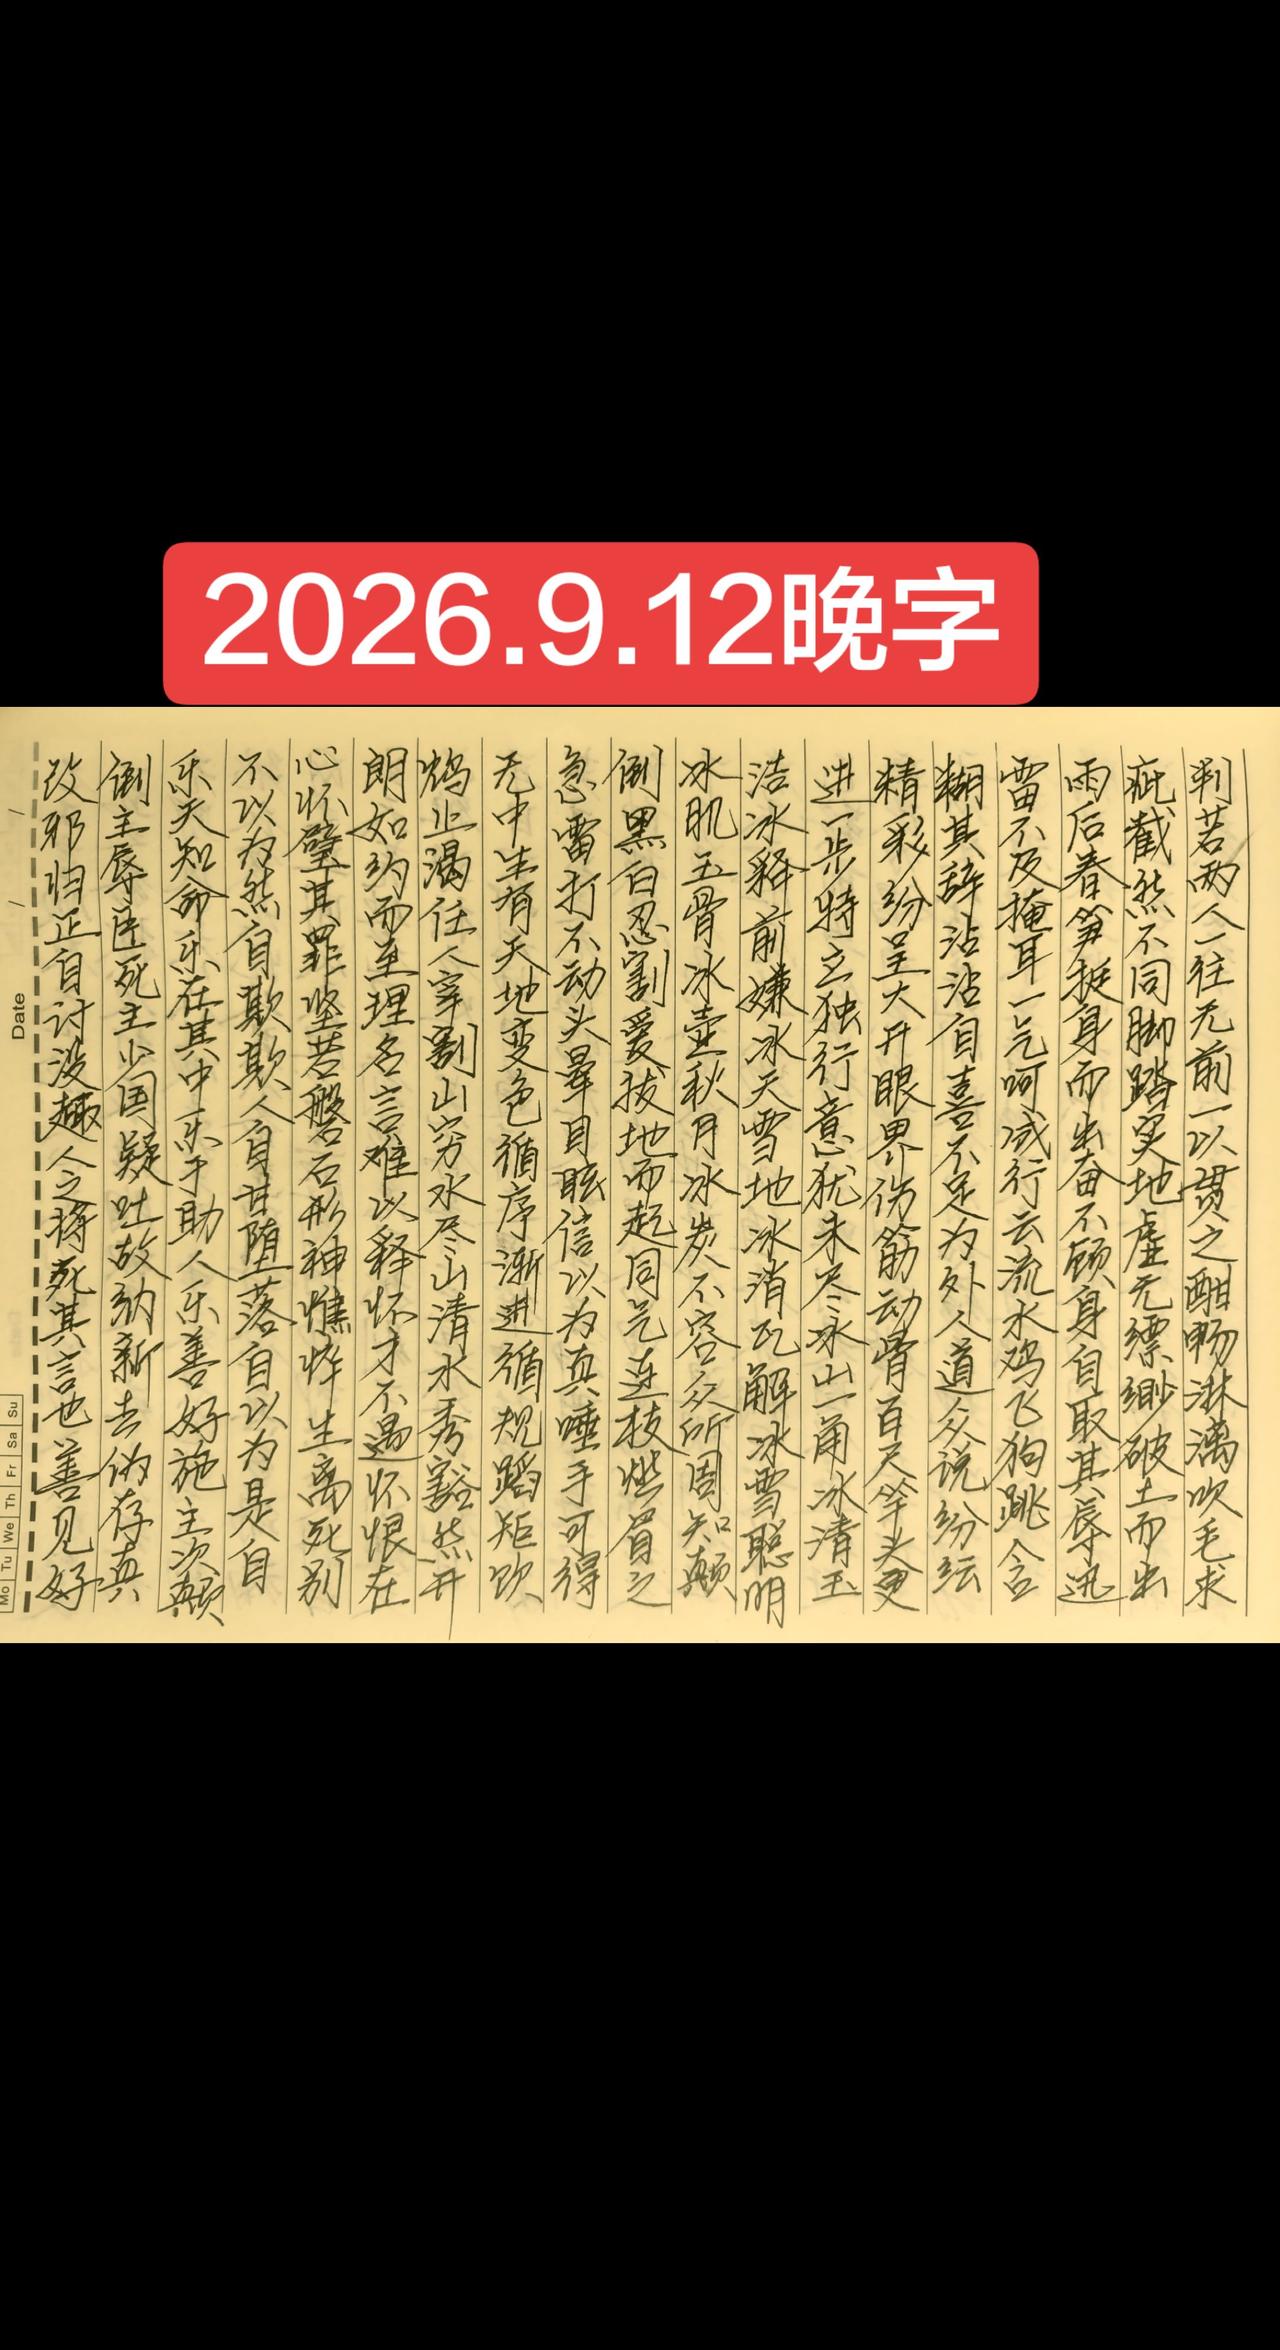 2026.9.12晚字
判若两人一往无前一以贯之酣畅淋漓吹毛求
疵截然不同脚踏实地虚无缥缈破土而出
雨后春笋挺身而出奋不顾身自取其辱迅
雷不及掩耳一气呵成行云流水鸡飞狗跳含
糊其辞沾沾自喜不足为外人道众说纷纭
精彩纷呈大开眼界伤筋动骨百尺竿头更
进一步特立独行意犹未尽冰山一角冰清玉
洁冰释前嫌冰天雪地冰消瓦解冰雪聪明
冰肌玉骨冰壶秋月冰炭不容众所周知颠
倒黑白忍割爱拔地而起同气连枝燃眉之
急雷打不动头晕目眩信以为真唾手可得
无中生有天地变色循序渐进循规蹈矩饮
鸩止渴任人宰割山穷水尽山清水秀豁然开
朗如约而至理名言难以释怀才不遇怀恨在
心怀璧其罪坚若磐石形神憔悴生离死别
不以为然自欺欺人自甘堕落自以为是自
乐天知命乐在其中乐于助人乐善好施主次颠
倒主辱臣死主少国疑吐故纳新去伪存真
改邪归正自讨没趣人之将死其言也善见好
Date
Mo Tu We Th Fr Sa Su